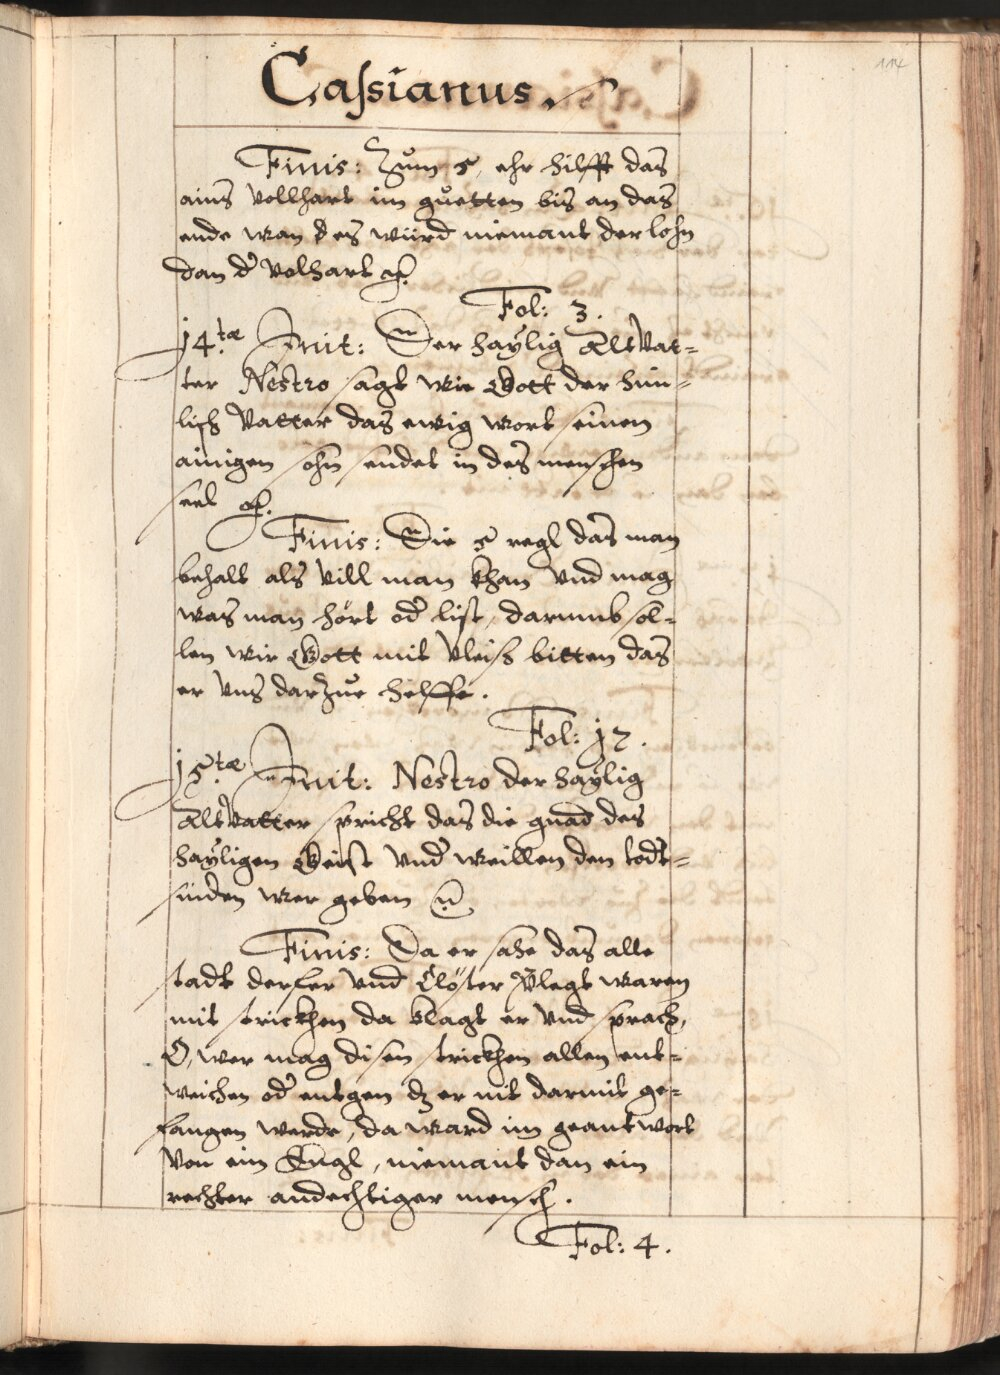 114
Cassianus.
Finis: Zum 5, ehr hilfft das
ains vollhart im guetten bis an das
ende wan es würd niemant der lohn
dan d' volhart
Fol: 3.
14.tæ Init: Der haÿlig Altvat-
ter Nestro sagt wie Gott der him-
lisch Vatter das ewig wort seinen
ainigen sohn sendet in des menschen
seel
Finis: Die 5 regl das man
behalt als vill man khan vnd mag
was man hört od' list, darumb sol-
len wir Gott mit vleis bitten das
er vns darzue helffe.
Fol: 17.
15.tæ Init: Nestro der haÿlig
Altvatter spricht das die gnad des
haÿligen Geist vnd' weillen den todt-
sinden wer geben
Finis: Da er sahe das alle
stadt derfer vnd Clöster blegt waren
mit strickhen da klagt er vnd sprach,
O, wer mag disen strickhen allen ent-
weichen od' entgen dz er nit darmit ge-
fangen werde, da ward im geantwort
von ein Engl, niemant dan ein
rechter andechtiger mensch.
Fol: 4.